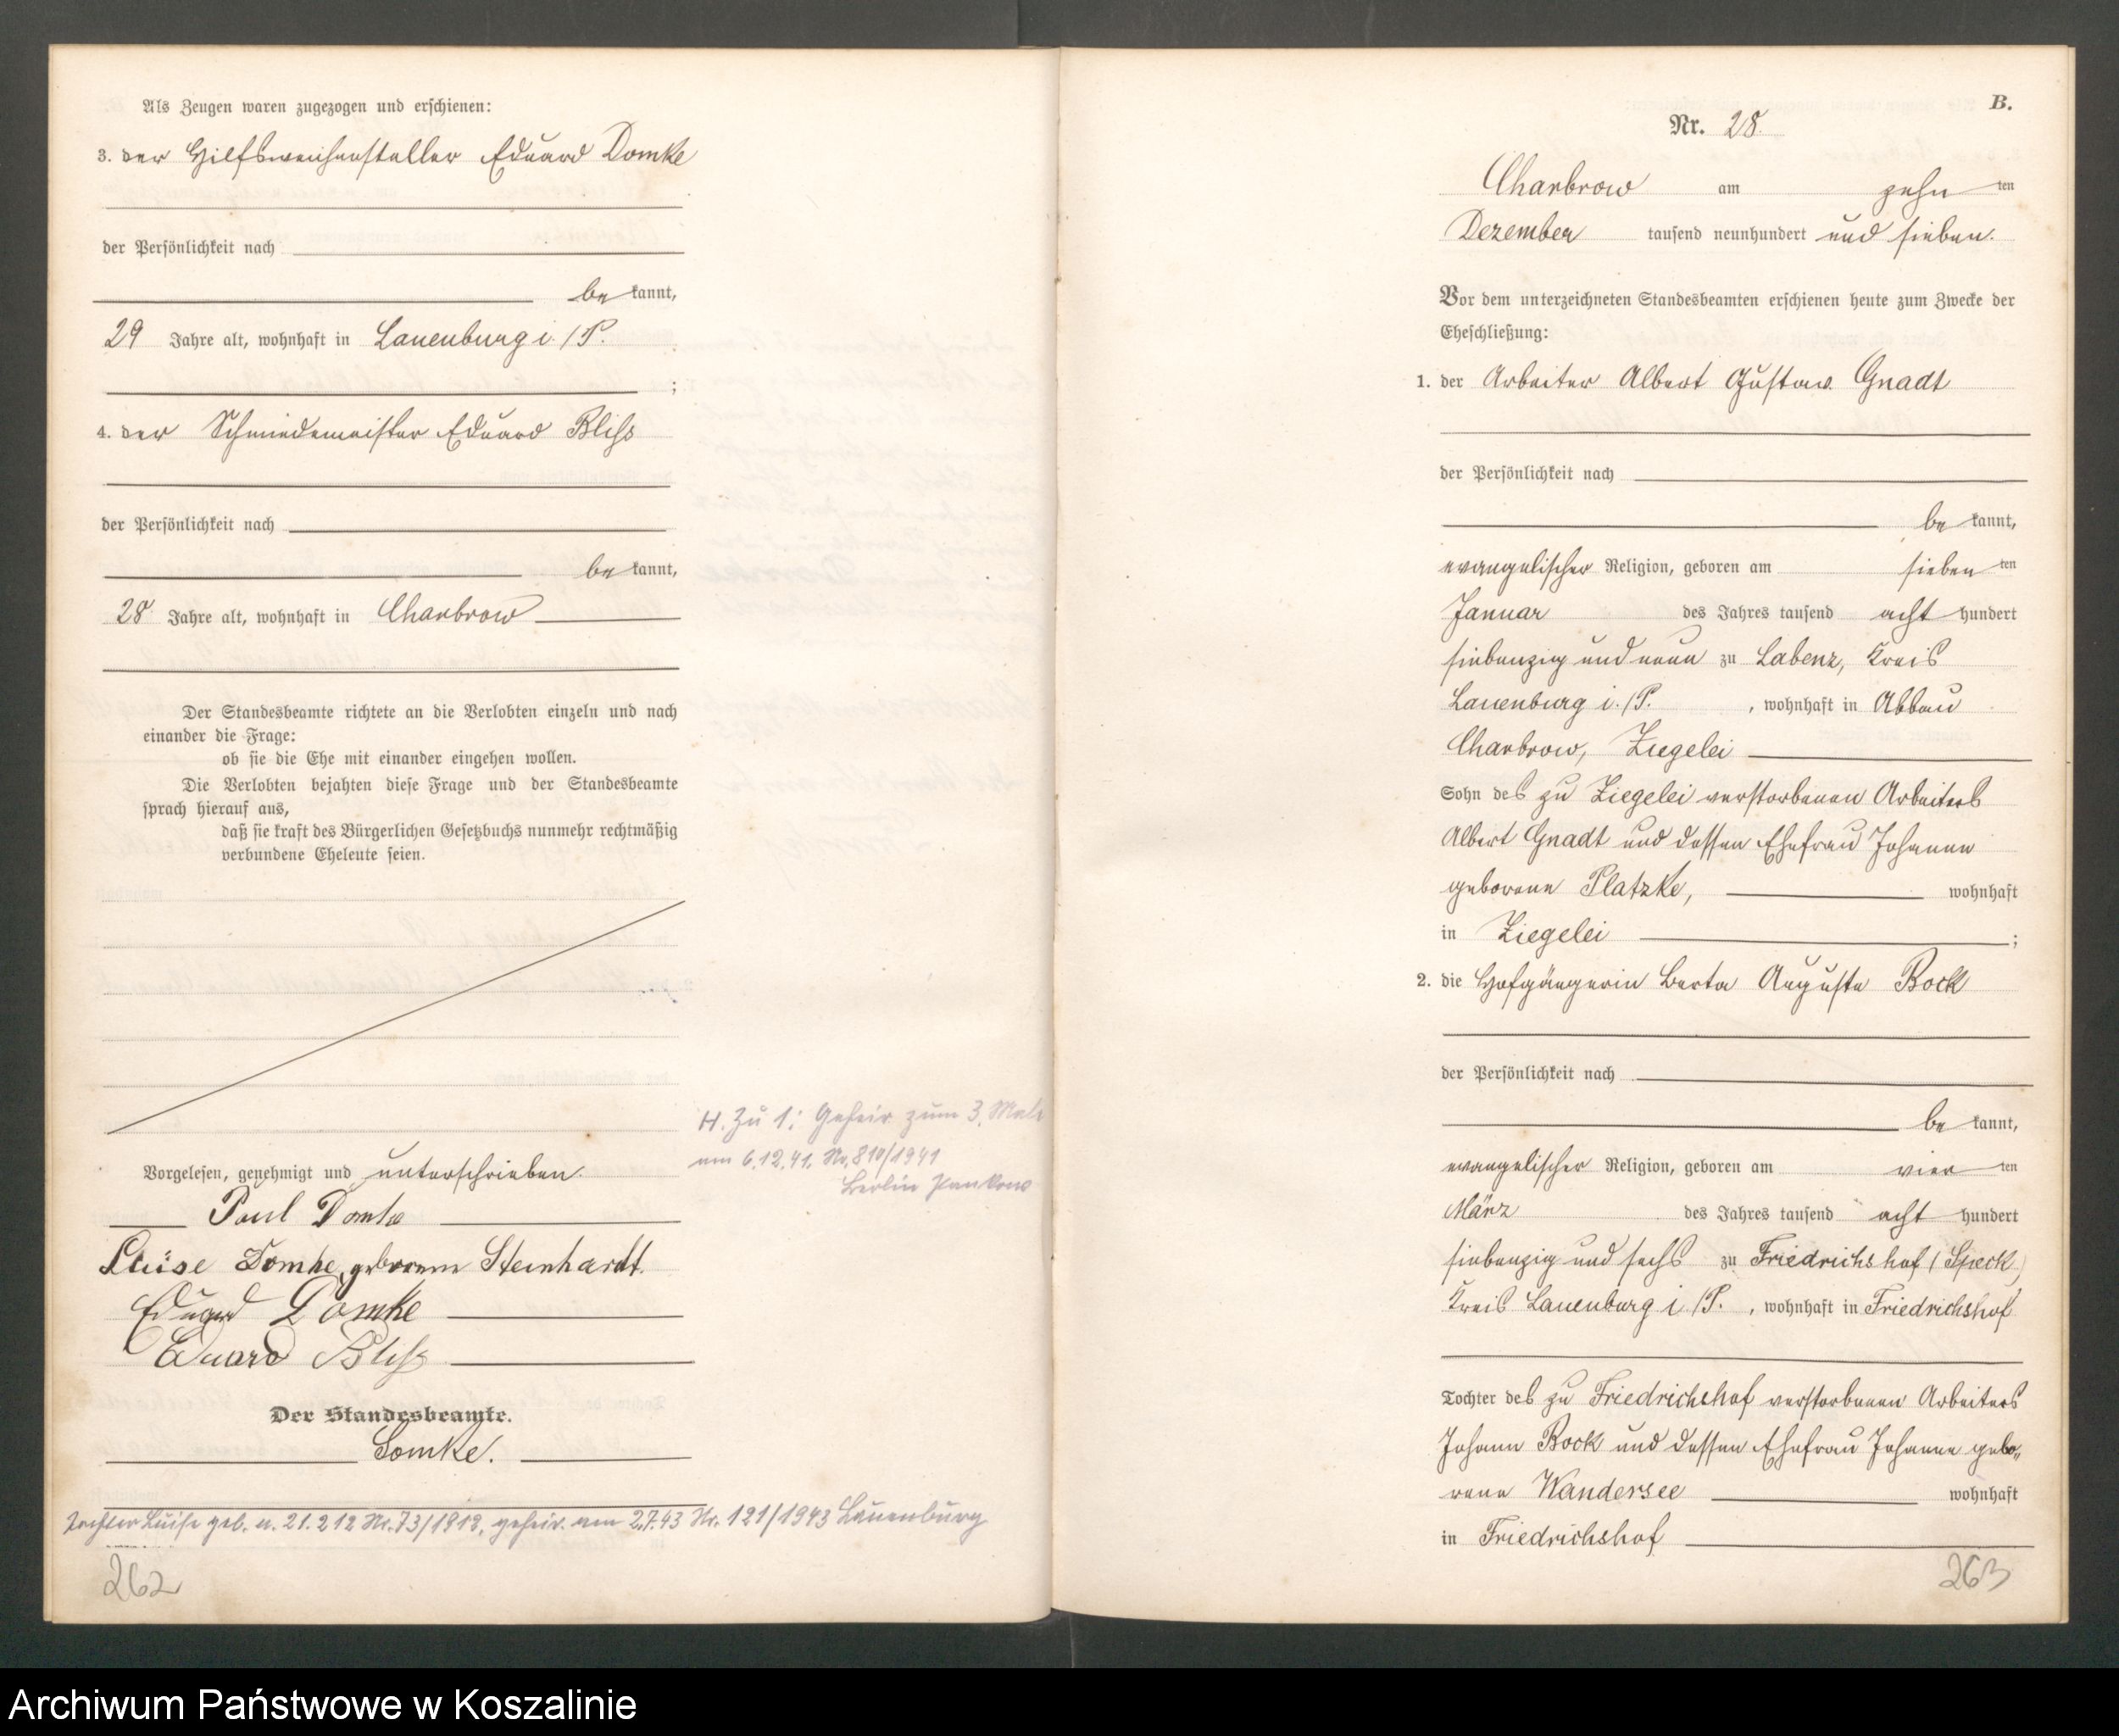 Als Zeugen waren zugezogen und erschienen:
3. der Hilfsweichensteller Eduard Domke
der Persönlichkeit nach
be kannt,
29 Jahre alt, wohnhaft in Lauenburg i./P.
;
4. der Schmiedemeister Eduard Bliss
der Persönlichkeit nach
be kannt,
28 Jahre alt, wohnhaft in Charbrow
Der Standesbeamte richtete an die Verlobten einzeln und nach
einander die Frage:
ob sie die Ehe mit einander eingehen wollen.
Die Verlobten bejahten diese Frage und der Standesbeamte
sprach hierauf aus,
daß sie kraft des Bürgerlichen Gesetzbuchs nunmehr rechtmäßig
verbundene Eheleute seien.
H. Zu 1: Geheir. zum 3. Male
am 6.12.41. Nr. 810/1941
Berlin Pankow
Vorgelesen, genehmigt und unterschrieben.
Paul Domke
Luise Domke, geborene Steinhardt.
Eduard Domke
Eduard Bliss
Der Standesbeamte.
Domke.
Tochter Luise geb. a. 21.2 12 Nr. 73/1912, geheir. am 2.7.43 Nr. 121/1943 Lauenburg
262
B.
Nr. 28.
Charbrow am zehn ten
Dezember tausend neunhundert und sieben.
Vor dem unterzeichneten Standesbeamten erschienen heute zum Zwecke der
Eheschließung:
1. der Arbeiter Albert Gustav Gnadt
der Persönlichkeit nach
be kannt,
evangelischer Religion, geboren am sieben ten
Januar des Jahres tausend acht hundert
siebenzig und neun zu Labenz, Kreis
Lauenburg i./P. , wohnhaft in Abbau
Charbrow, Ziegelei
Sohn des zu Ziegelei verstorbenen Arbeiters
Albert Gnadt und dessen Ehefrau Johanne
geborene Platzke, wohnhaft
in Ziegelei ;
2. die Hofgängerin Berta Auguste Bock
der Persönlichkeit nach
be kannt,
evangelischer Religion, geboren am vier ten
März des Jahres tausend acht hundert
siebenzig und sechs zu Friedrichshof (Speck)
Kreis Lauenburg i./P. , wohnhaft in Friedrichshof
Tochter des zu Friedrichshof verstorbenen Arbeiters
Johann Bock und dessen Ehefrau Johanne gebo„
rene Wandersee wohnhaft
in Friedrichshof
263
Archiwum Państwowe w Koszalinie